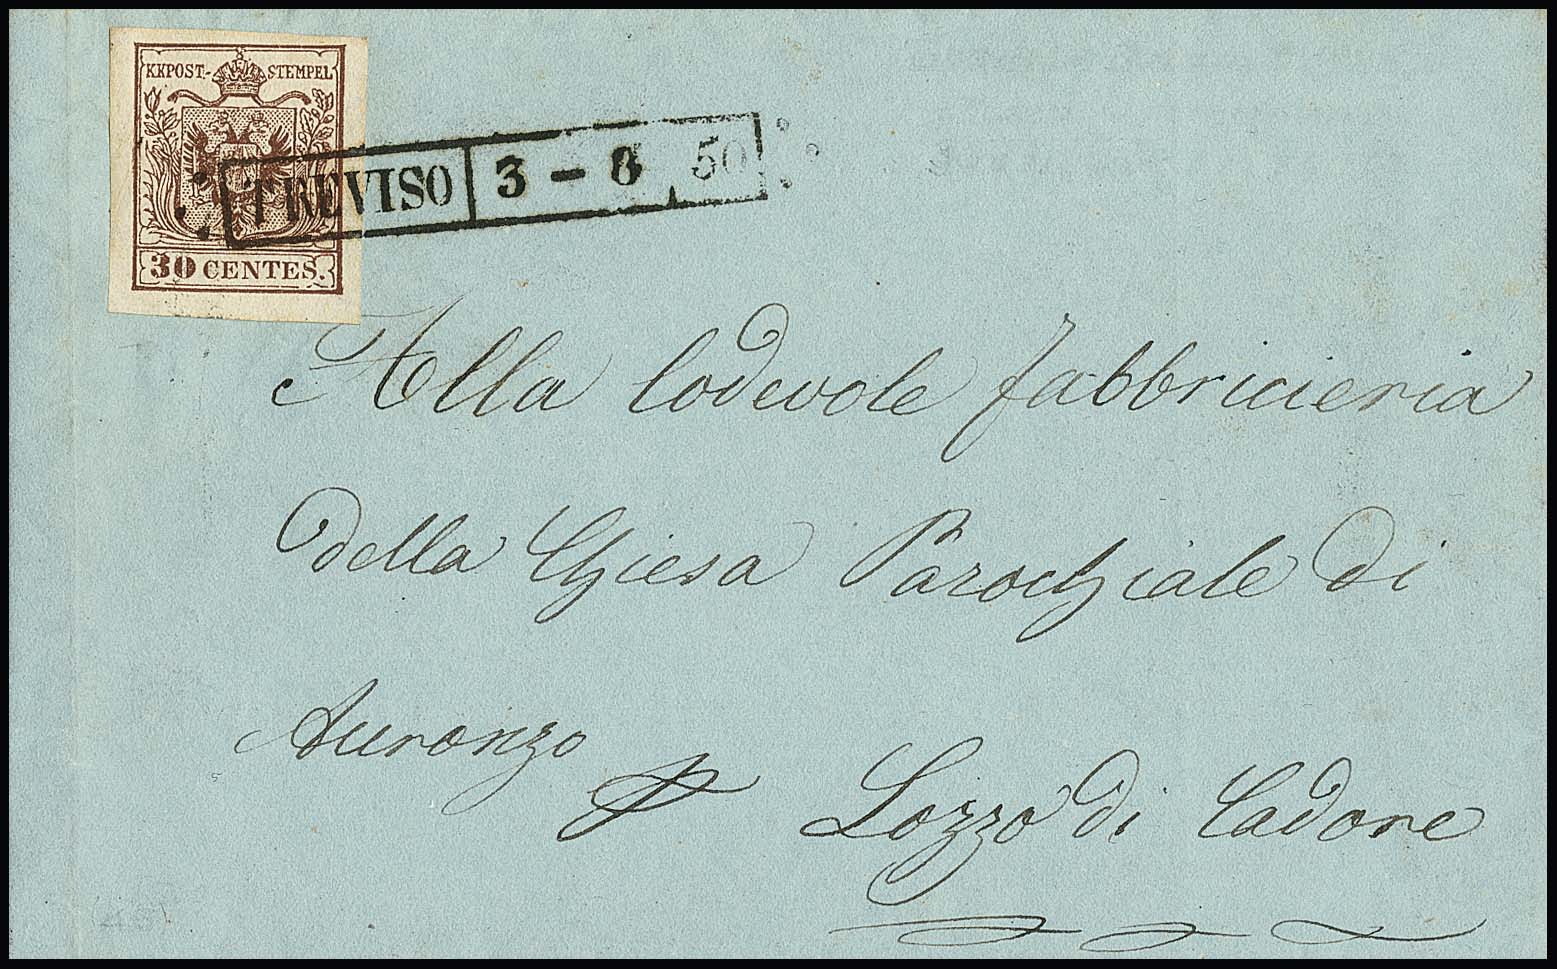 KKPOST.-STEMPEL
TREVISO 3 - 8 50
30 CENTES.
Alla lodevole fabbricieria
della Chiesa Parochiale di
Auronzo
Lozzo di Cadore